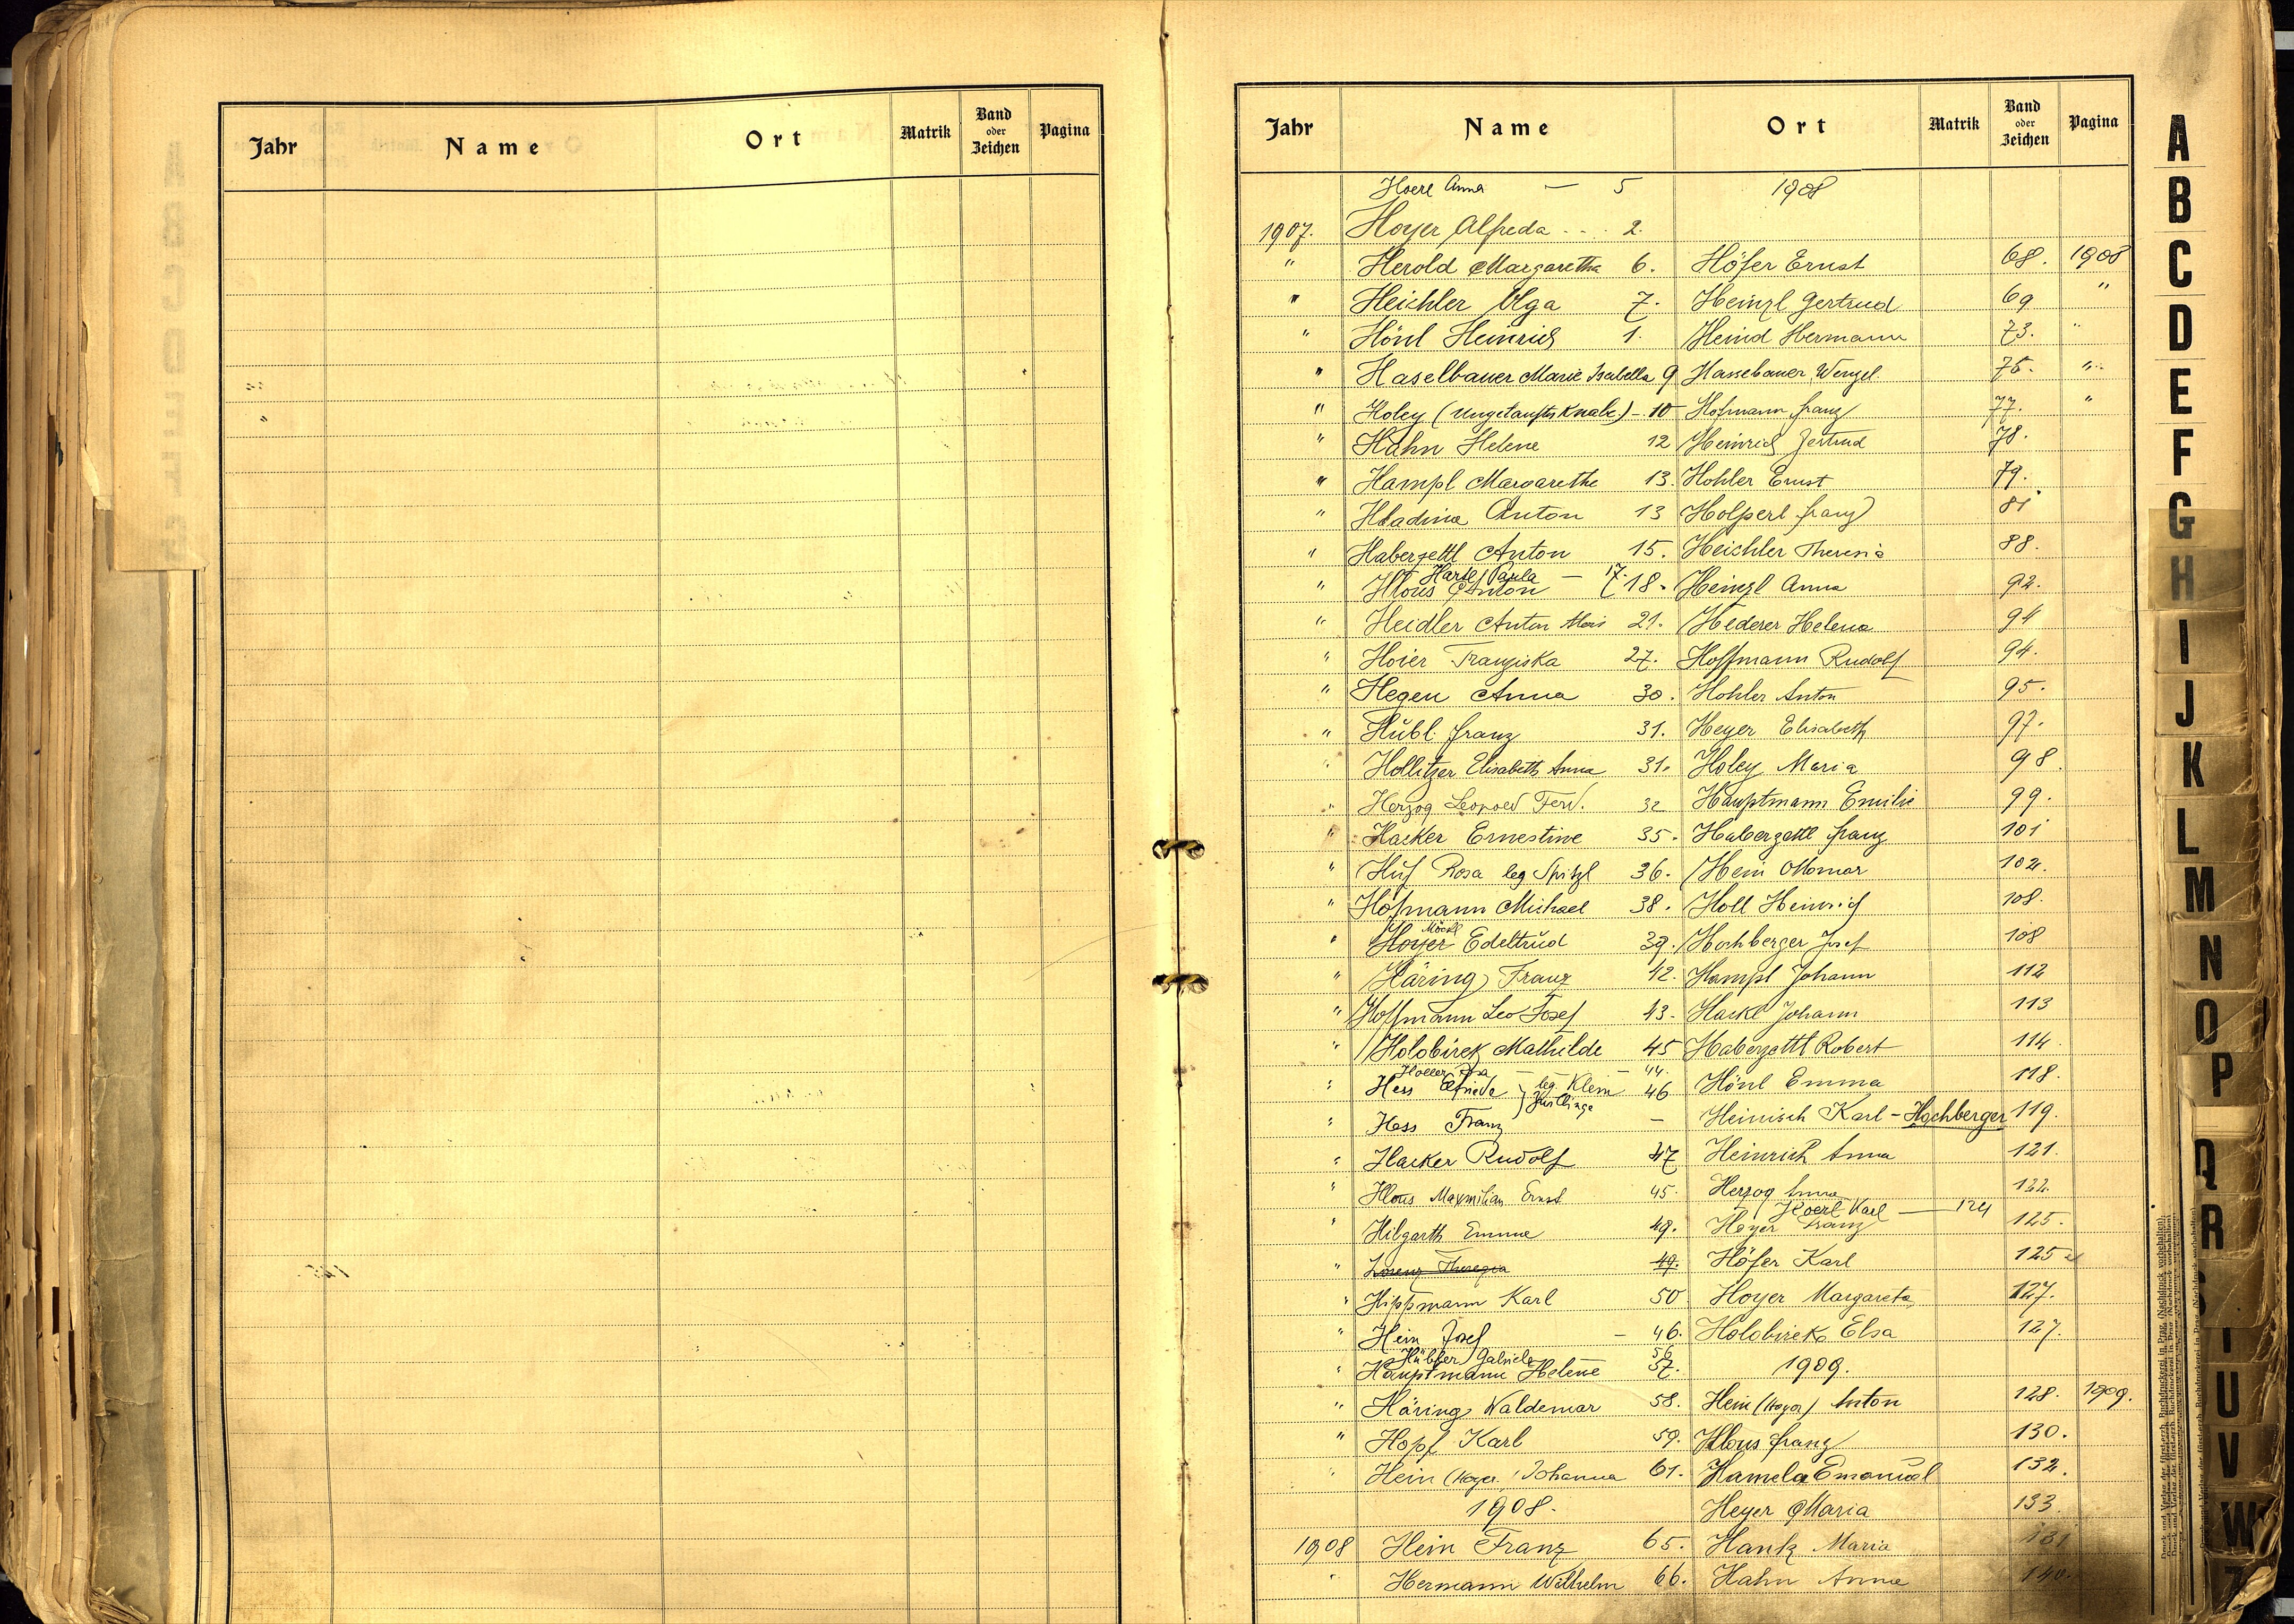 Jahr Name Ort Matrik Band oder Zeichen Pagina
Jahr Name Ort Matrik Band oder Zeichen Pagina
Hoerl Anna — 5 1908
1907. Hoyer Alfreda . . . . 2.
" Herold Margaretha 6. Höfer Ernst 68. 1908
" Heichler Olga 7. Heinzl Gertrud 69 "
" Hönl Heinrich 1. Heind Hermann 73. "
" Haselbauer Marie Isabella 9 Hassebauer Wenzel. 75. "
" Holey (Ungetaufter Knabe) - 10 Hofmann Franz 77. "
" Hahn Helene 12 Heinrich Gertrud 78.
" Hampl Margarethe 13. Hohler Ernst 79.
" Hladina Anton 13 Holperl Franz 81
" Haberzettl Anton 15. Heichler Theresia 88.
Hartl Paula — 17.
" Hlous Anton 18. Heinzl Anna 92.
" Heidler Anton Alois 21. Hederer Helena 94
" Hoier Franziska 27. Hoffmann Rudolf 94.
" Hegen Anna 30. Hohler Anton 95.
" Hübl Franz 31. Heyer Elisabeth 97.
" Hollitzer Elisabeth Anna 31. Holey Maria 98.
" Herzog Leopold Ferd. 32 Hauptmann Emilie 99.
" Hacker Ernestine 35. Haberzettl Franz 101
" Huf Rosa leg Spitzl 36. Hein Ottomar 102.
" Hofmann Michael 38. Holl Heinrich 108.
Möckl
" Hoyer Edeltrud 39. Hochberger Josef 108
" Häring Franz 42. Hampl Johann 112
" Hoffmann Leo Josef 43. Hackl Johann 113
" Holobirek Mathilde 45 Haberzettl Robert 114.
— 44.
" Hess Elfriede } leg. Klein 46 Hönl Emma 118.
Zwillinge
" Hess Franz — Heinisch Karl - Hochberger 119.
" Hacker Rudolf 47 Heinrich Anna 121.
" Hlous Maxmilian Ernst 45. Herzog Anna 122.
Hoerl Karl — 124
" Hilgarth Emma 49. Heyer Franz 125.
" Lorenz Theresia 49. Höfer Karl 125
" Hippmann Karl 50 Hoyer Margareta 127.
" Hein Josef — 46. Holobirek Elsa 127.
Hübler Gabriele 56
" Hauptmann Helene 57. 1909.
" Häring Waldemar 58. Hein (Hoyer) Anton 128. 1909.
" Hopf Karl 59. Hlous Franz 130.
" Hein (Hoyer) Johanna 61. Hamela Emanuel 132.
1908. Heyer Maria 133.
1908 Hein Franz 65. Hank Maria 131
" Hermann Wilhelm 66. Hahn Anna 140.
A
B
C
D
E
F
G
H
I
J
K
L
M
N
O
P
Q
R
S
T
U
V
W
Z